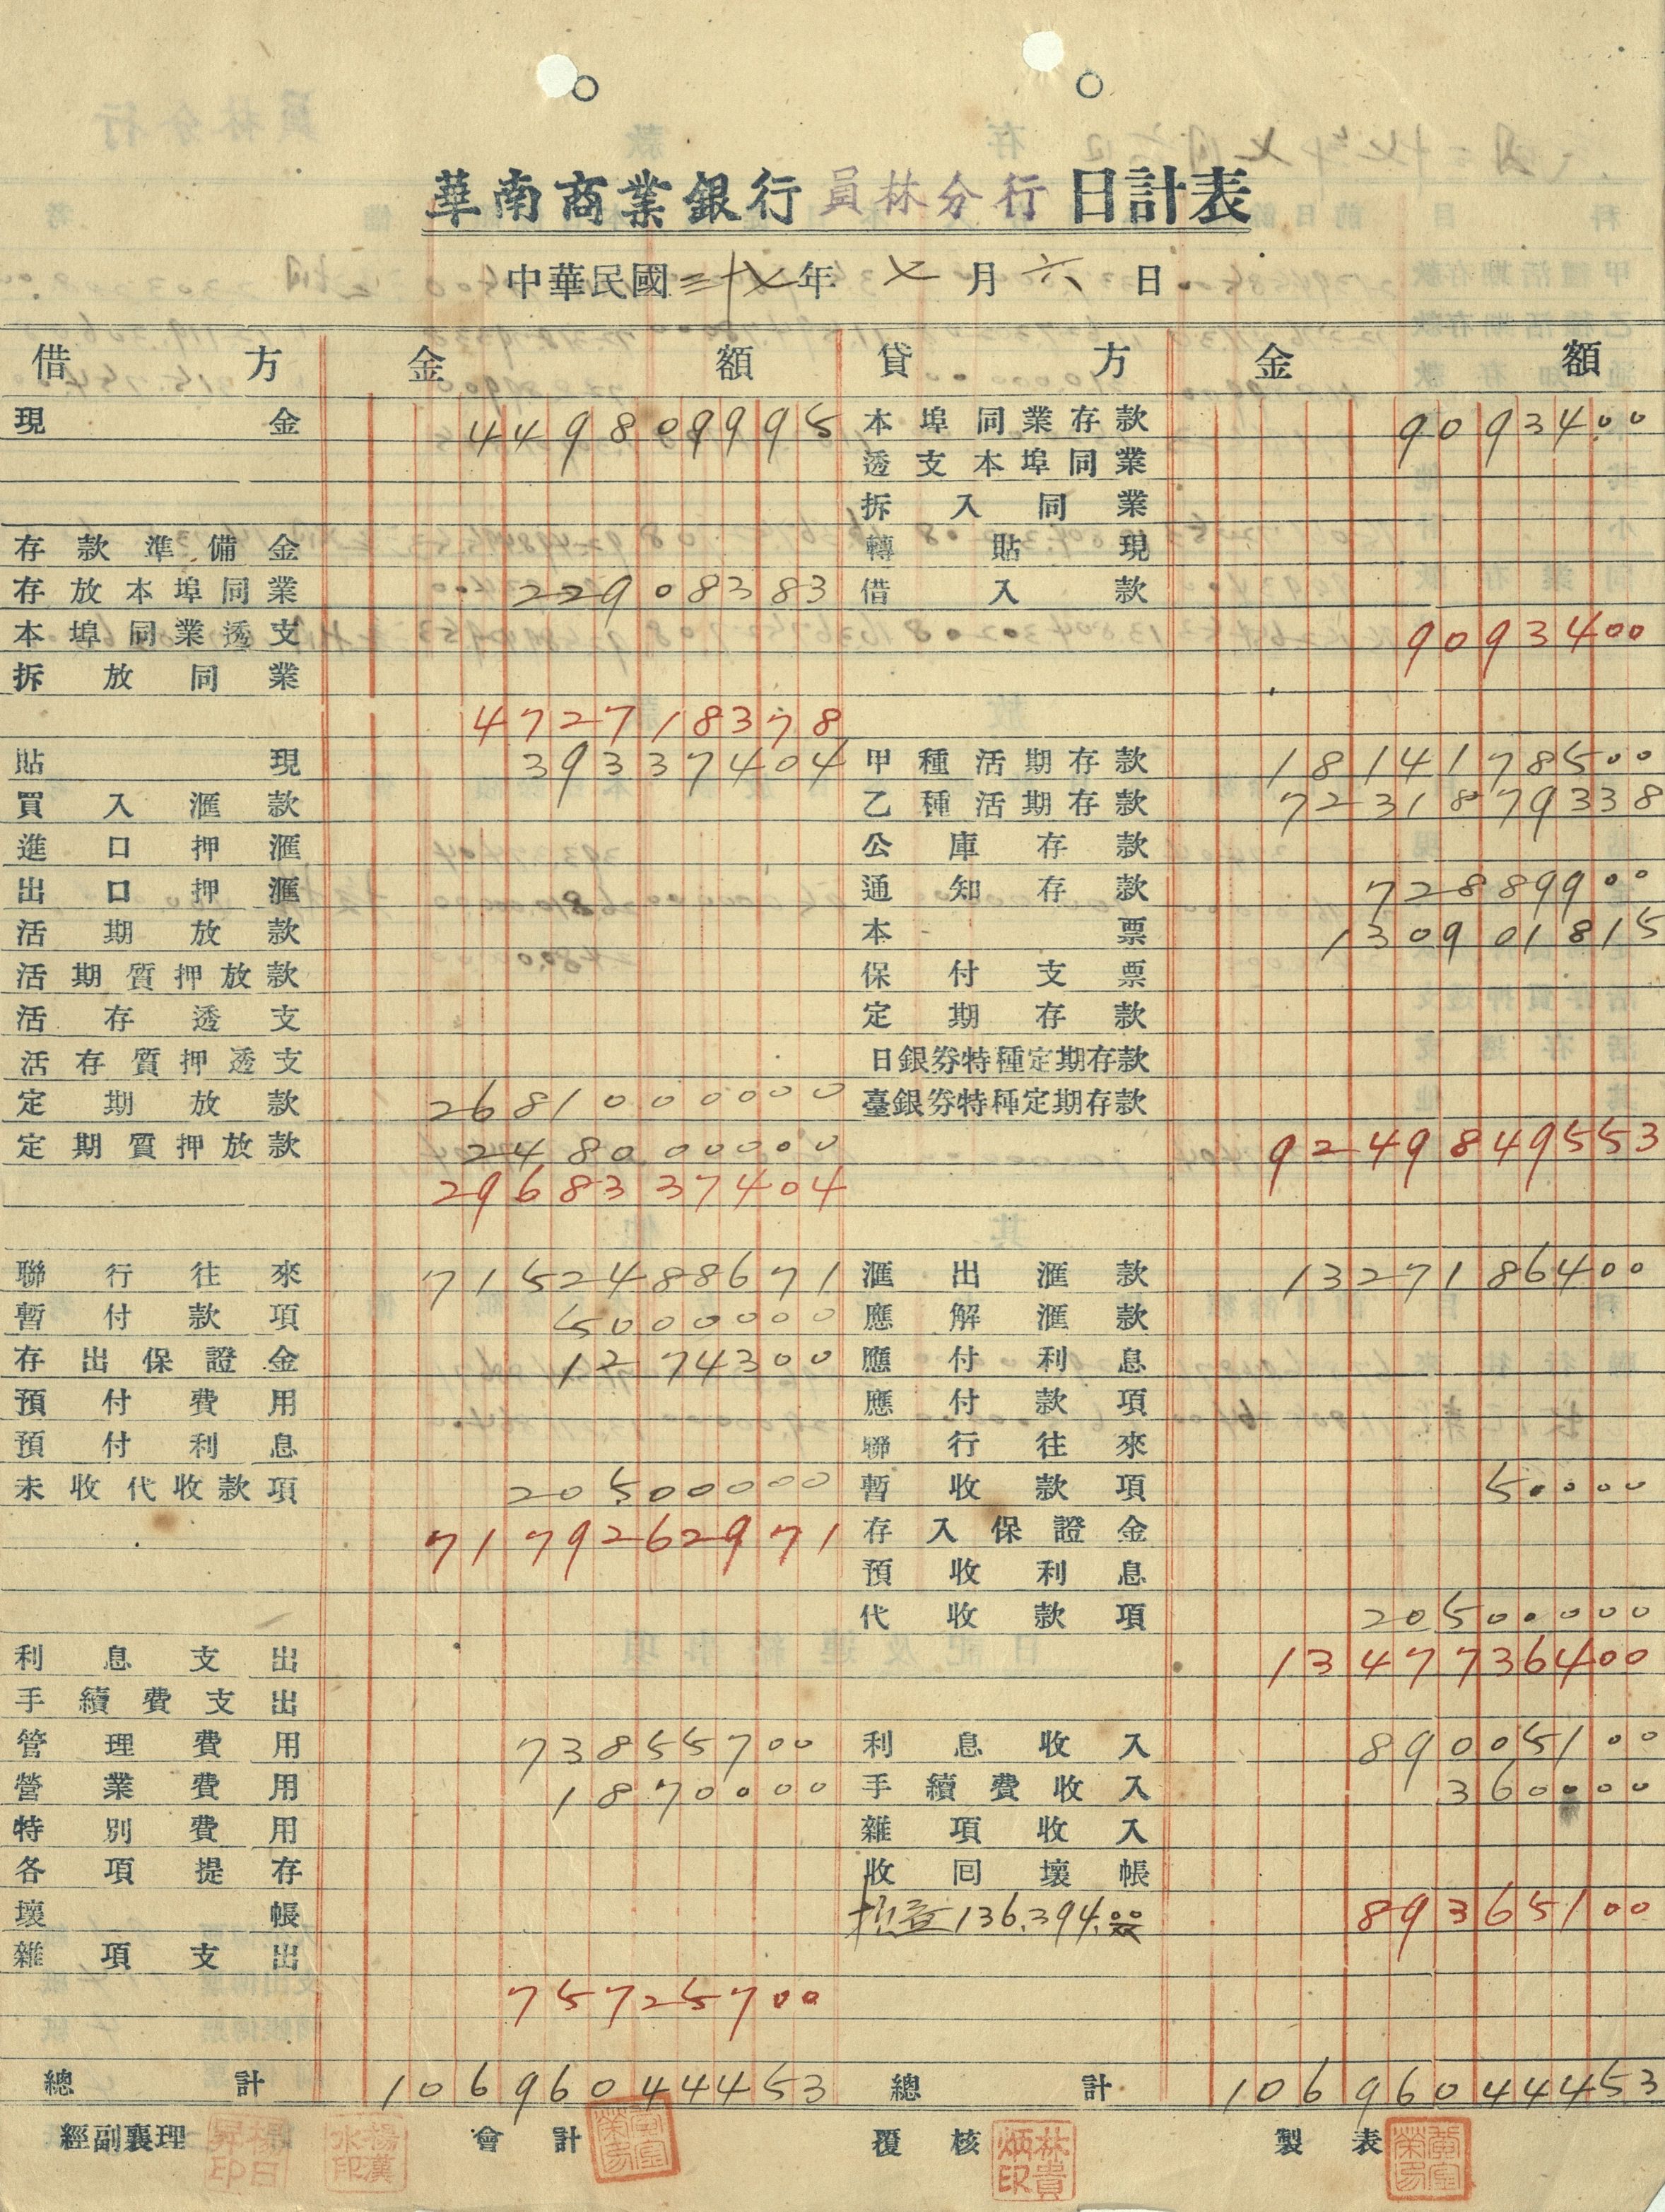 華南商業銀行員林分行日計表
中華民國三十七年七月六日
借方 金額 貸方 金額
現金 449809995 本埠同業存款 9093400
透支本埠同業
拆入同業
存款準備金 轉貼現
存放本埠同業 22908383 借入款
本埠同業透支 9093400
拆放同業
4727183 78
貼現 39337404 甲種活期存款 1814178500
買入滙款 乙種活期存款 7231879338
進口押滙 公庫存款
出口押滙 通知存款 72889900
活期放款 本票 130901815
活期質押放款 保付支票
活存透支 定期存款
活存質押透支 日銀券特種定期存款
定期放款 2681000000 臺銀券特種定期存款
定期質押放款 248000000 9249849553
2968337404
聯行往來 7152488671 滙出滙款 1327186400
暫付款項 5000000 應解滙款
存出保證金 1274300 應付利息
預付費用 應付款項
預付利息 聯行往來
未收代收款項 20500000 暫收款項 50000
7179262971 存入保證金
預收利息
代收款項 20500000
利息支出 1347736400
手續費支出
管理費用 73855700 利息收入 89005100
營業費用 1870000 手續費收入 360000
特別費用 雜項收入
各項提存 收回壞帳
壞帳 136,394.00 89365100
雜項支出
75725700
總計 10696044453 總計 10696044453
經副襄理 楊日昇印 楊漢水印 會計 覆核 林貴炳印 製表